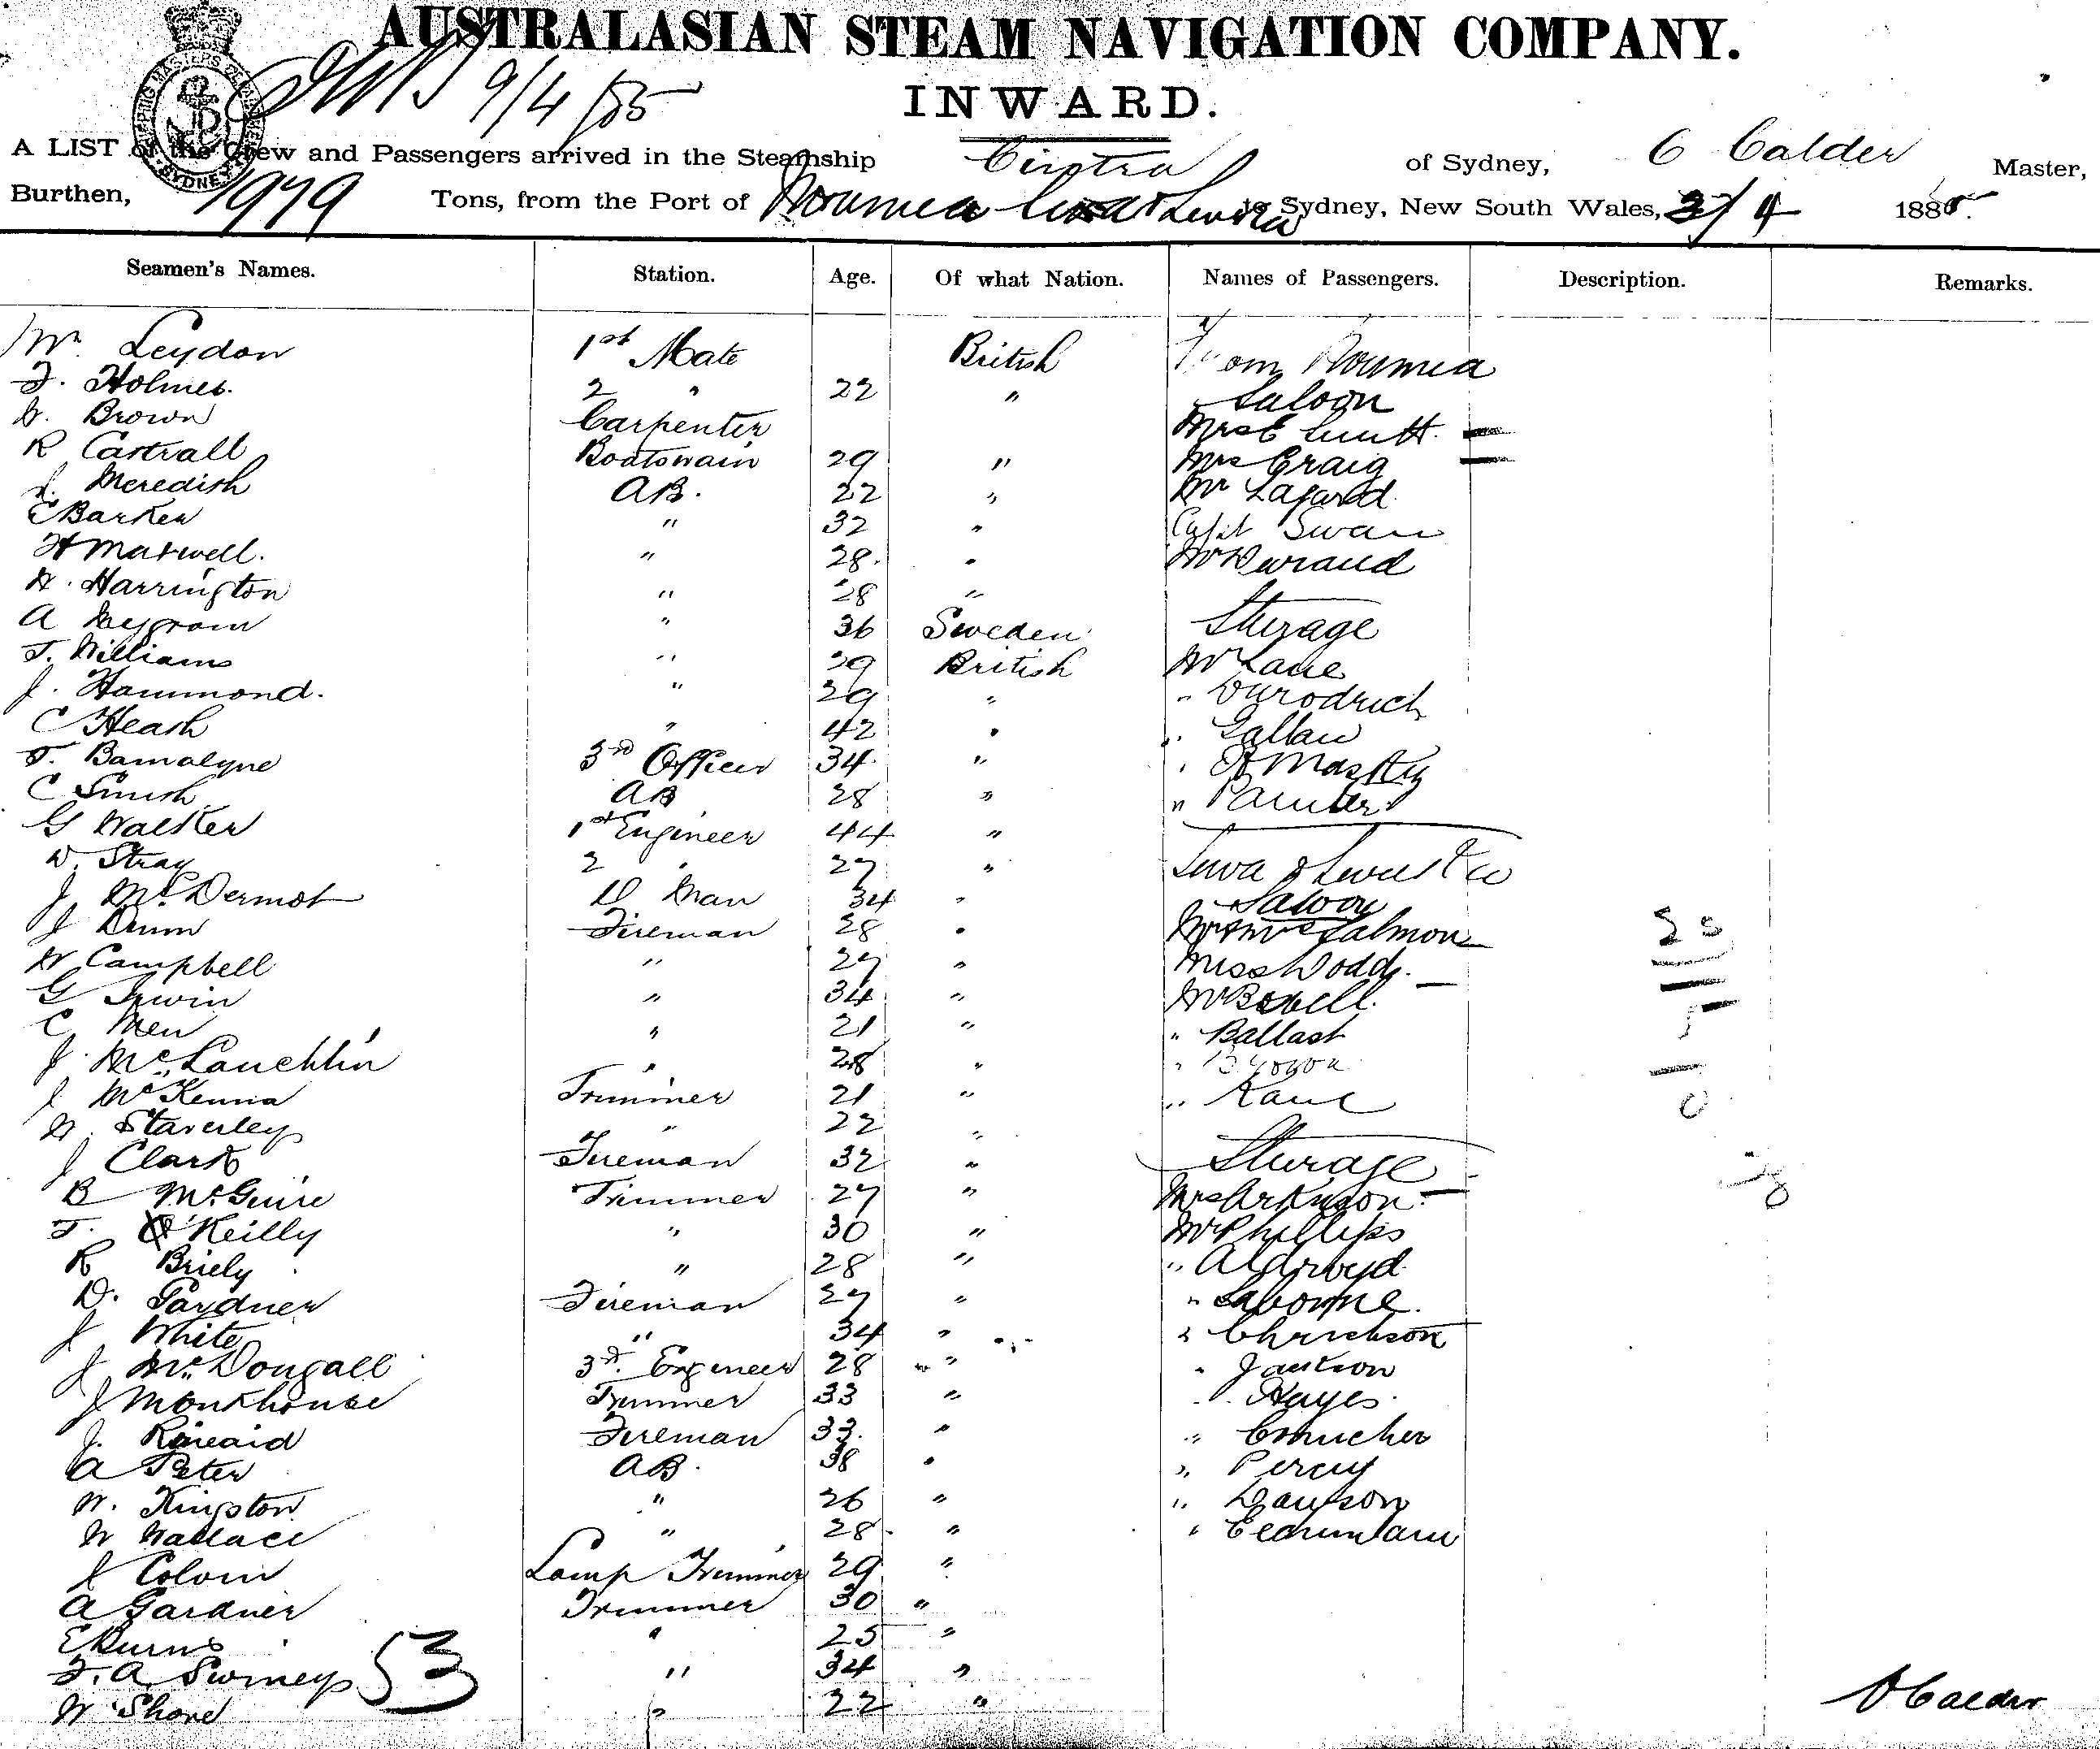 AUSTRALASIAN STEAM NAVIGATION COMPANY.
9/4/85
INWARD.
A LIST of the Crew and Passengers arrived in the Steamship Cintra of Sydney, C Calder Master,
Burthen, 1979 Tons, from the Port of Noumea & Levuka to Sydney, New South Wales, 3/4 1885.
Seamen's Names. Station. Age. Of what Nation. Names of Passengers. Description. Remarks.
Wm Leydon 1st Mate British From Noumea
F. Holmes. 2 " 22 " Saloon
W. Brown Carpenter Mrs
R Cartrall Boatswain 29 " Mrs Craig
J. Meredith AB. 22 " Mr Lafard
E Barker " 32 " Capt Swan
H Maxwell. " 28. " Mr Durand
H. Harrington " 28 "
A " 36 Sweden Sterage
T. Williams " 29 British Mr Lane
J. Hammond. " 29 "
C Heath " 42 " "
T. Bamalyne 3rd Officer 34 " "
C Smith AB 28 " "
G Walker 1st Engineer 44 "
W. Stray 2 " 27 " Suva & Levuka
J McDermot D Man 34 " Saloon
J Dunn Fireman 28 " Mr & Mrs Salmon
W Campbell " 27 " Miss Dodds.
G Irwin " 34 " Mr
C Men " 21 " " Ballast
J. McLauchlin " 28 " "
J McKenna Trimmer 21 " " Kane
W. Staverley " 22 "
J Clark Fireman 32 " Sterage
B McGuire Trimmer 27 " Mrs Arkinson
T. O'Keilly " 30 " Mr Phillips
R Briely " 28 " "
D. Gardner Fireman 27 " "
J White " 34 " "
J McDougall 3rd Engineer 28 " " Jackson
J Monkhouse Trimmer 33 " " Hayes
J. Kincaid Fireman 33. " " Croucher
A Peter AB. 38 " " Percy
W. Kingston " 26 " " Dawson
W Wallace " 28 " "
J Colvin Lamp Trimmer 29 "
A Gardner Trimmer 30 "
E Burns " 25 "
F. A Swiney 53 " 34 "
W Shore " 22 " C Calder